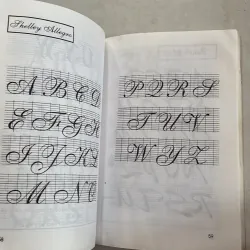 Shelley Allegro
A B C D
E F G H
I J K L
M N O
P Q R S
T U V
W Y Z